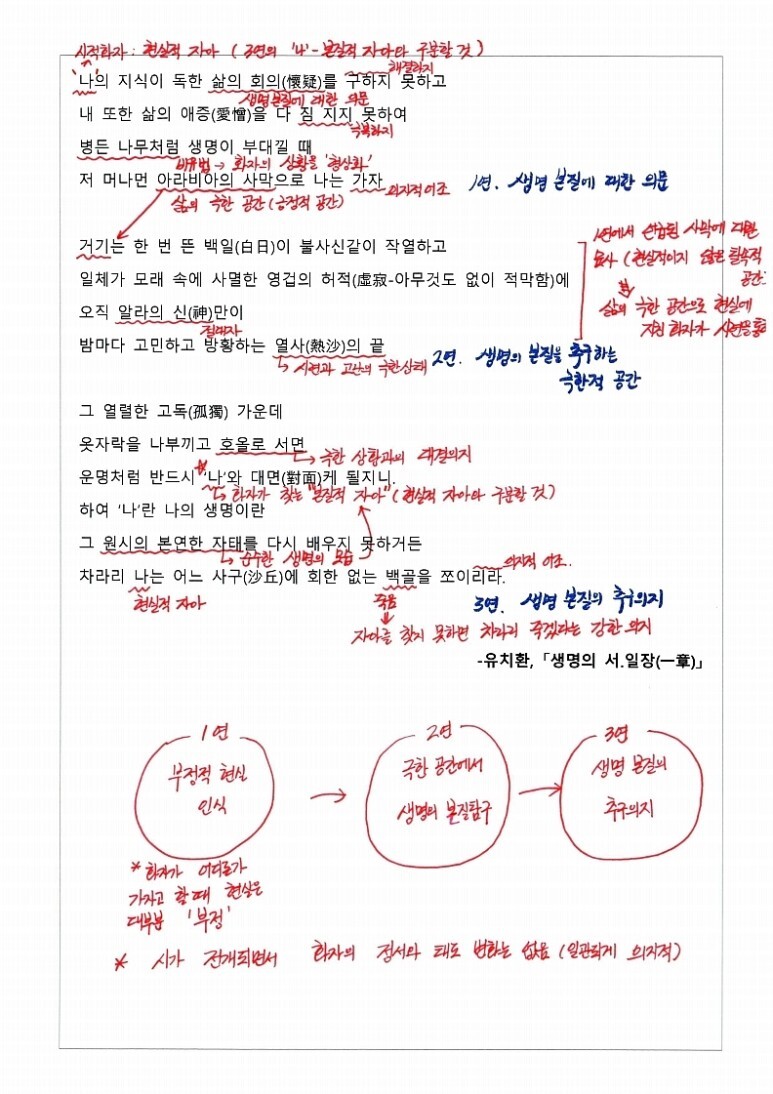 시적화자 : 현실적 자아 ( 3연의 '나' - 본질적 자아와 구분할 것 )
'나'의 지식이 독한 삶의 회의(懷疑)를 구하지 못하고
해결하지
생명본질에 대한 의문
내 또한 삶의 애증(愛憎)을 다 짐 지지 못하여
극복하지
병든 나무처럼 생명이 부대낄 때
비유법 → 화자의 상황을 '형상화'
저 머나먼 아라비아의 사막으로 나는 가자
의지적어조
1연. 생명 본질에 대한 의문
삶의 극한 공간 (긍정적 공간)
거기는 한 번 뜬 백일(白日)이 불사신같이 작열하고
일체가 모래 속에 사멸한 영겁의 허적(虛寂-아무것도 없이 적막함)에
오직 알라의 신(神)만이
절대자
밤마다 고민하고 방황하는 열사(熱沙)의 끝
↳ 시련과 고난의 극한상태
1연에서 언급된 사막에 대한
묘사 (현실적이지 않은 탈속적
공간)
삶의 극한 공간으로 현실에
지친 화자가 시련을
2연. 생명의 본질을 추구하는
극한적 공간
그 열렬한 고독(孤獨) 가운데
옷자락을 나부끼고 호올로 서면
↳ 극한 상황과의 대결의지
운명처럼 반드시 '나'와 대면(對面)케 될지니.
↳ 화자가 찾는 "본질적 자아" (현실적 자아와 구분할 것)
하여 '나'란 나의 생명이란
그 원시의 본연한 자태를 다시 배우지 못하거든
↳ 순수한 생명의 모습
의지적 어조.
차라리 나는 어느 사구(沙丘)에 회한 없는 백골을 쪼이리라.
현실적 자아
죽음
3연. 생명 본질의 추구의지
자아를 찾지 못하면 차라리 죽겠다는 강한 의지
-유치환,「생명의 서.일장(一章)」
1연
부정적 현실
인식
→
2연
극한 공간에서
생명의 본질탐구
→
3연
생명 본질의
추구의지
* 화자가 어디론가
가자고 할 때 현실은
대부분 '부정'
* 시가 전개되면서 화자의 정서와 태도 변화는 없음 (일관되게 의지적)